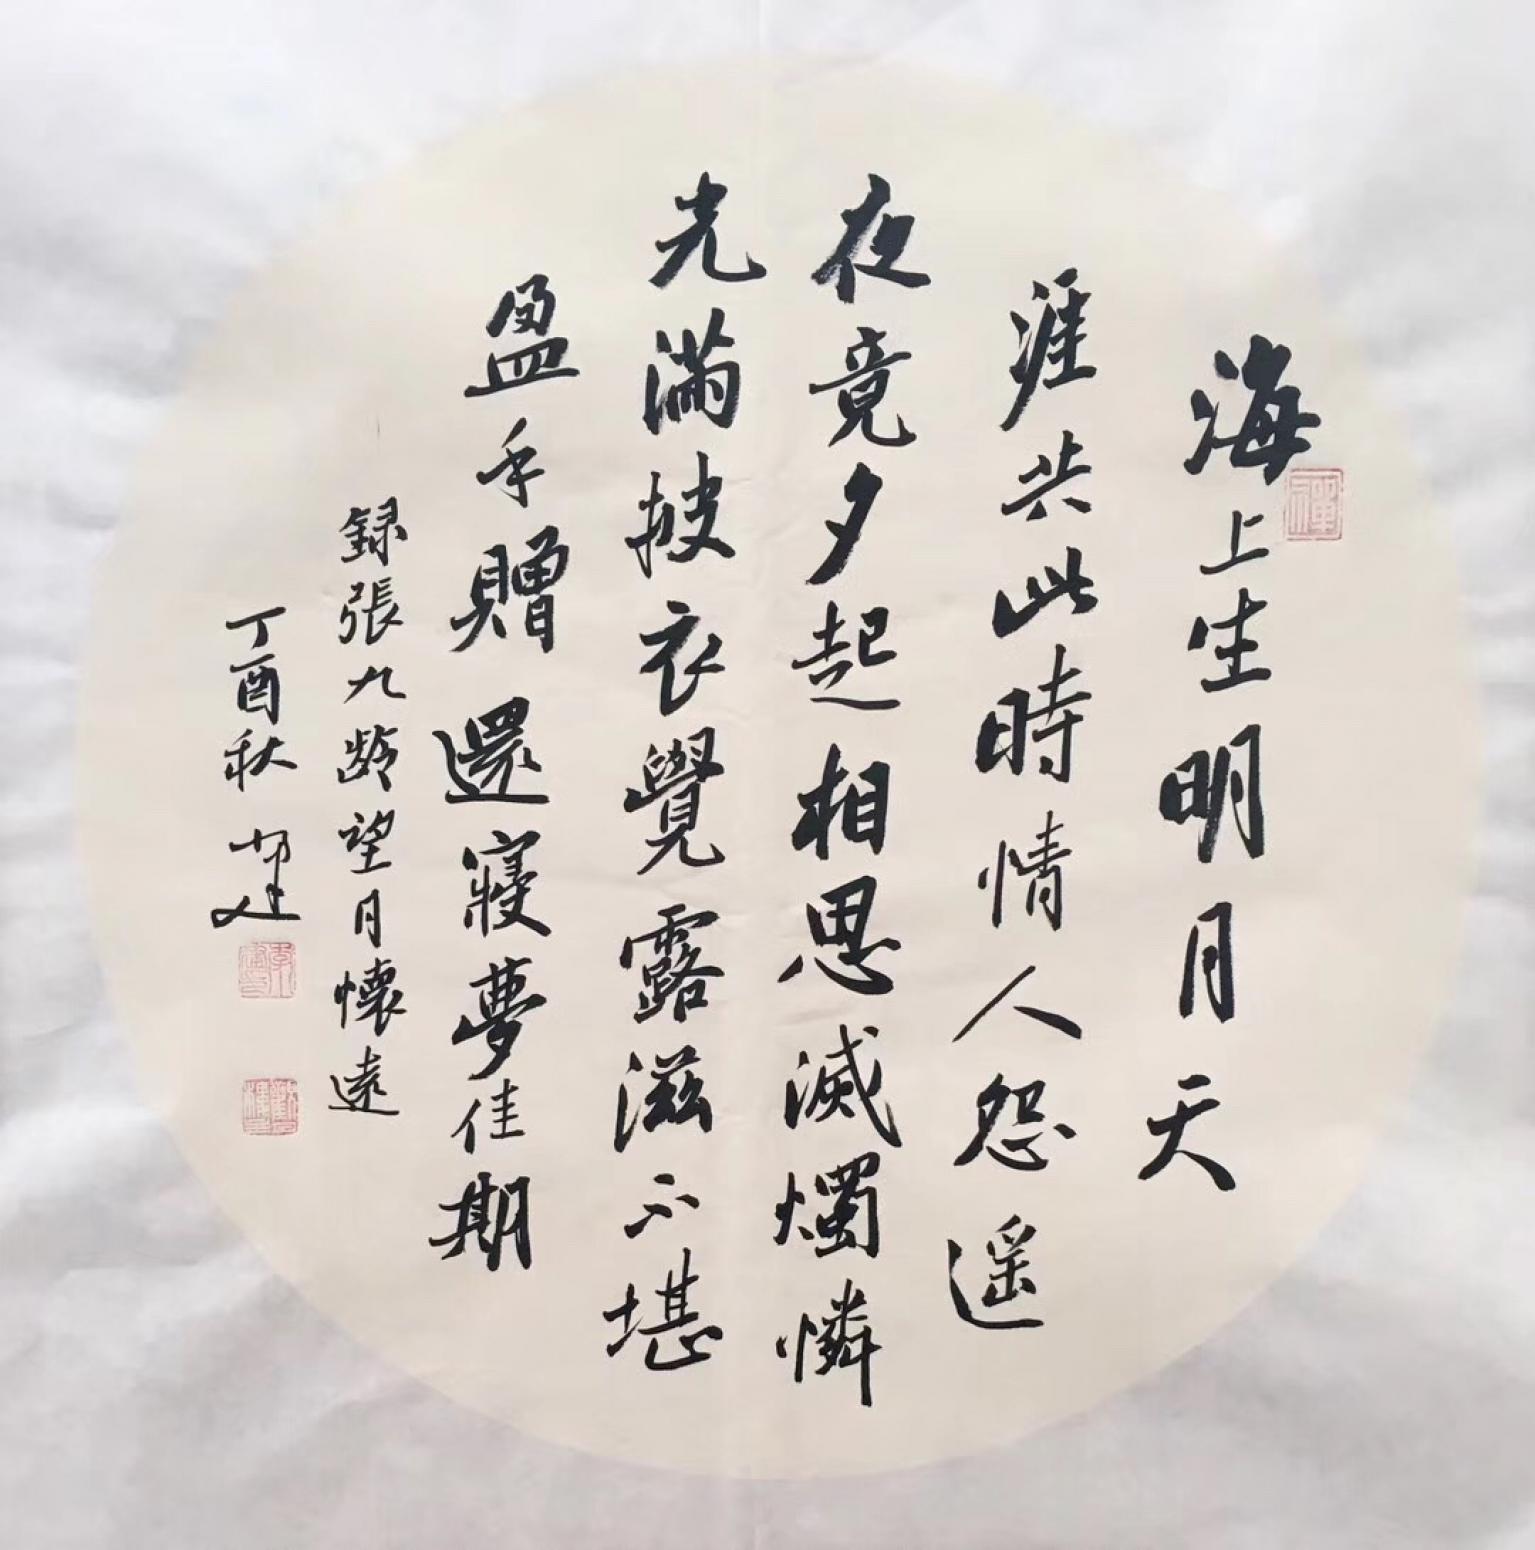 海上生明月天
涯共此時情人怨遥
夜竟夕起相思滅燭憐
光滿披衣覺露滋不堪
盈手贈還寢夢佳期
録張九齡望月懷遠
丁酉秋